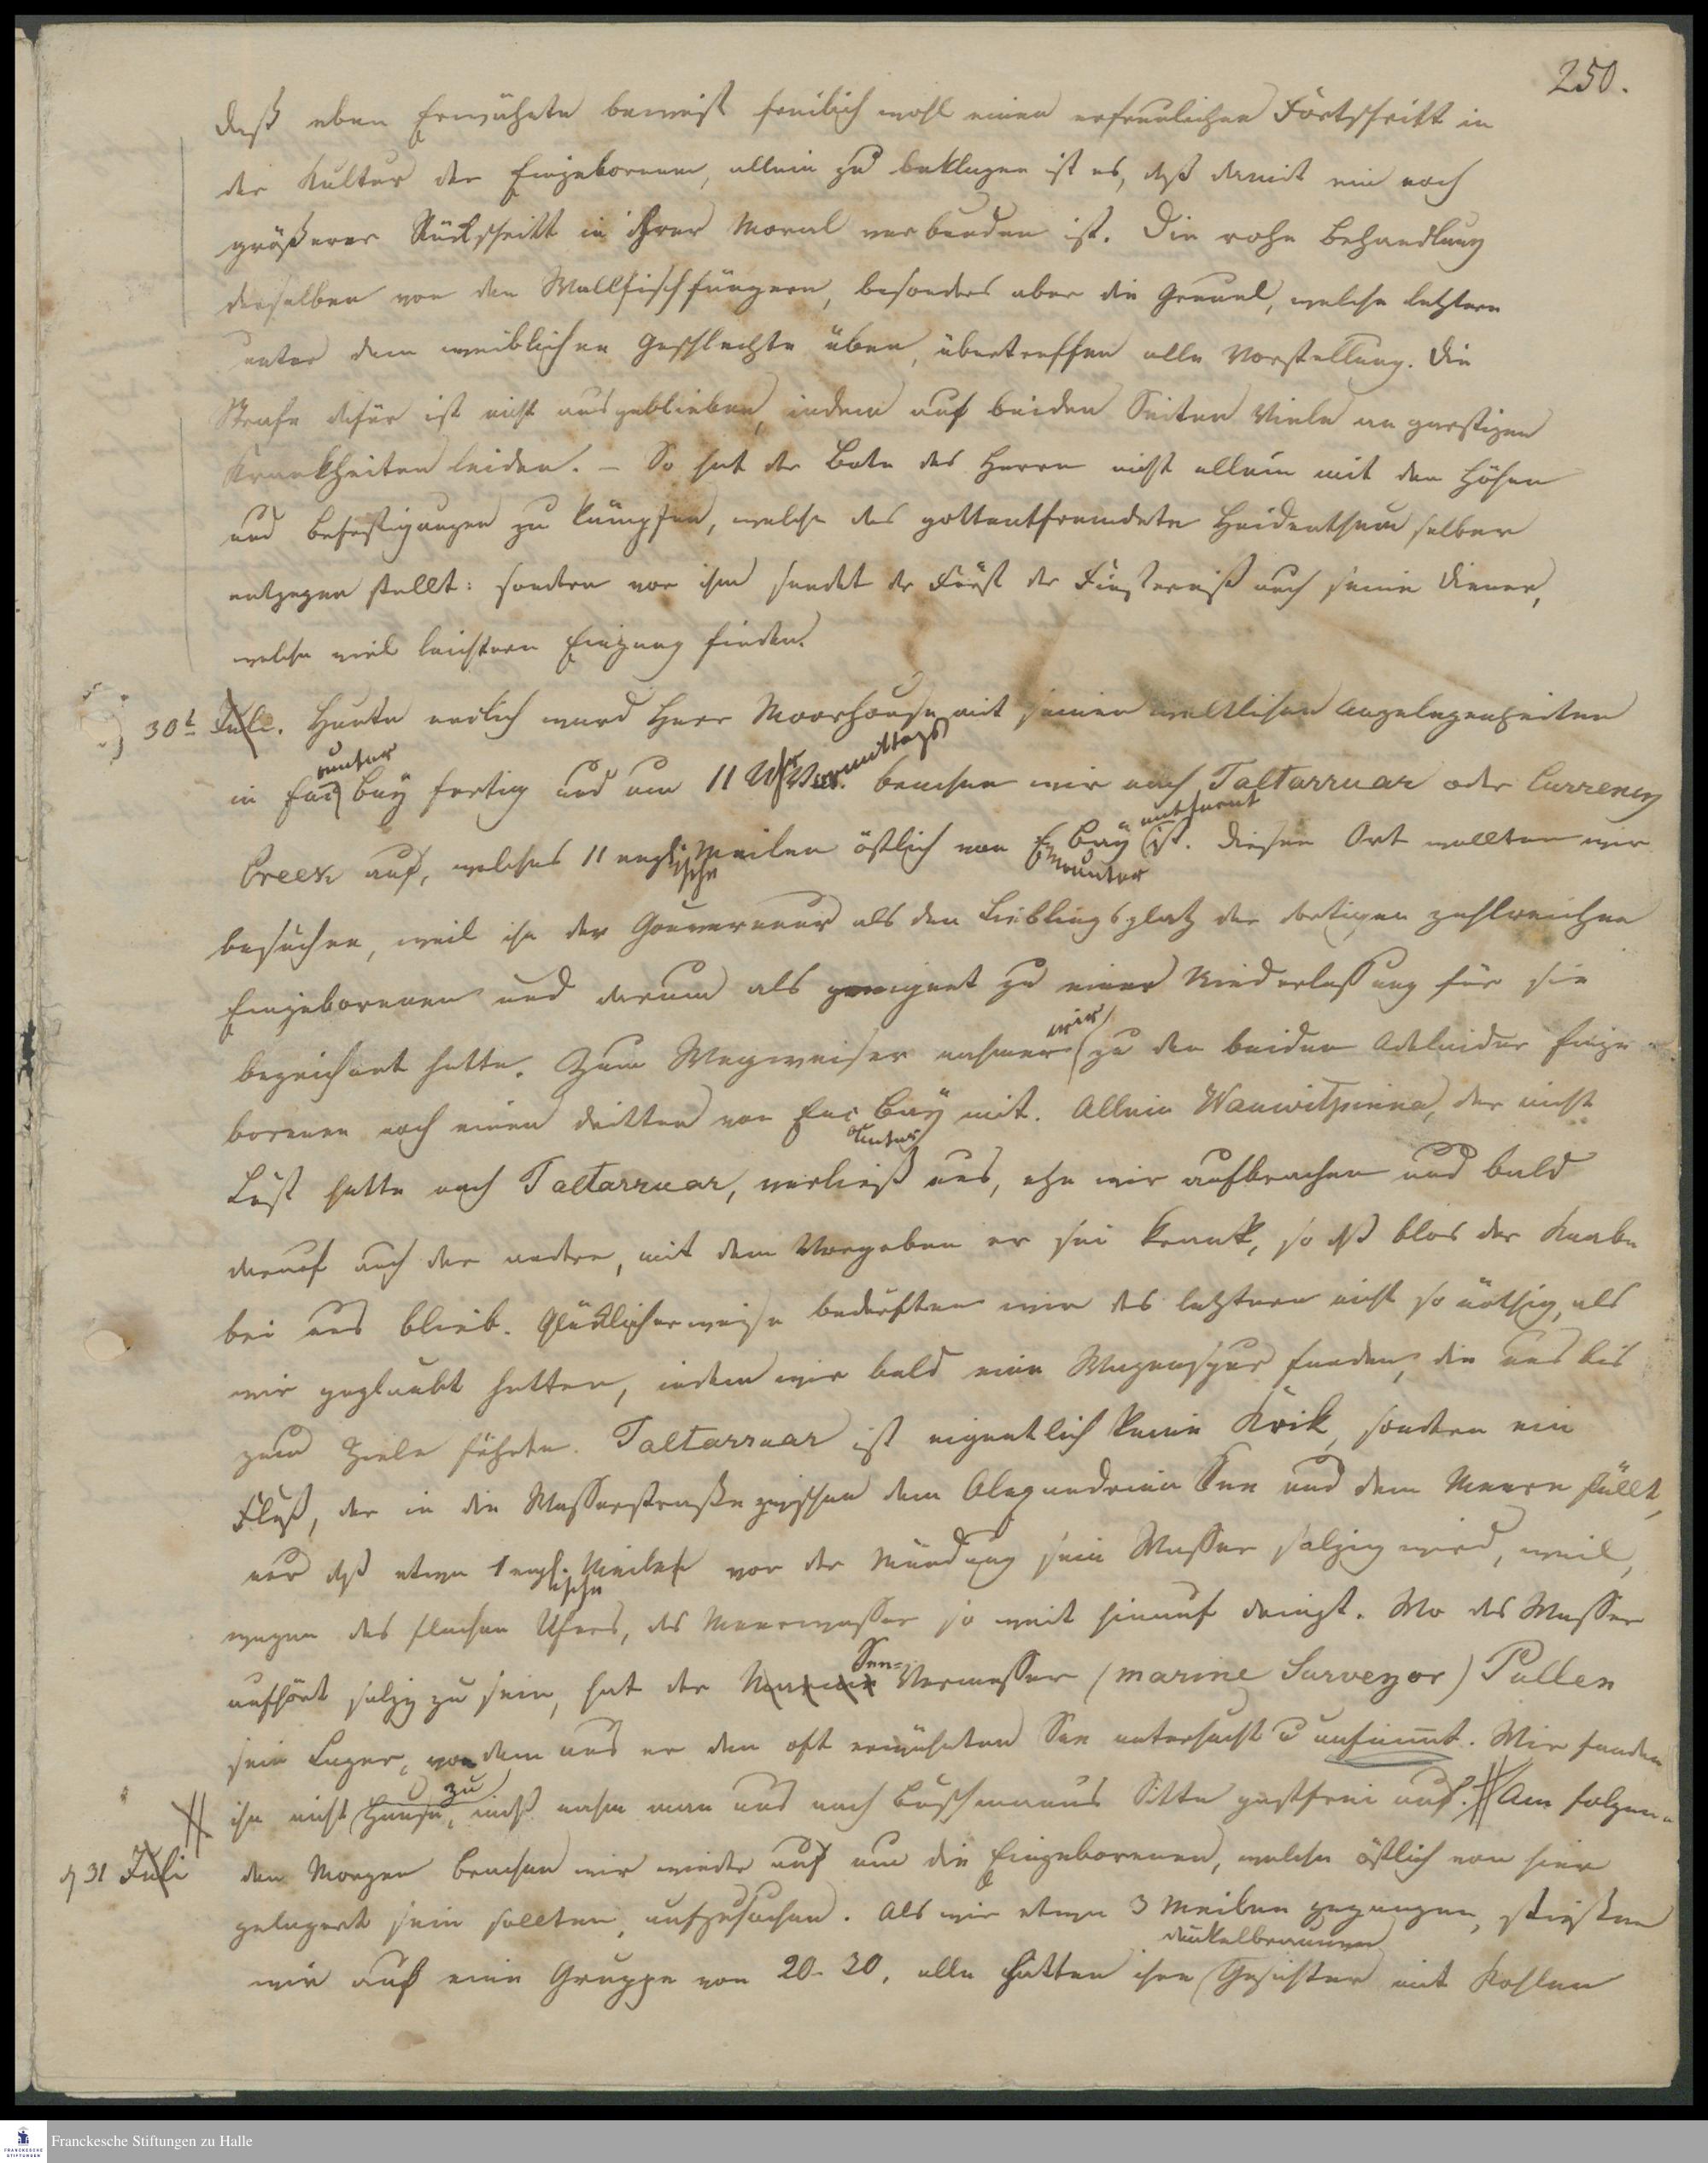 250.
daß eben Erwähnte beweist freilich wohl einen erfreulichen Fortschritt in
der Kultur der Eingeborenen, allein zu beklagen ist es, daß damit ein noch
größerer Rückschritt in ihrer Moral verbunden ist. Die rohe Behandlung
derselben von den Wallfischfängern, besonders aber die Greuel, welche letztere
unter dem weiblichen Geschlechte üben, übertreffen alle Vorstellung. Die
Strafe dafür ist nicht ausgeblieben, indem auf beiden Seiten Viele an garstigen
Krankheiten leiden. – So hat der Bote des Herrn nicht allein mit den Höhen
und Befestigungen zu kämpfen, welche das gottentfremdete Heidenthum selber
entgegen stellt: sondern vor ihm sendet der Fürst der Finsterniß auch seine Diener,
welche viel leichtern Eingang finden.
30t Juli. Heute endlich ward Herr Moorhouse mit seinen weltlichen Angelegenheiten
in Encounter Bay fertig und um 11 Uhr Vormittags brachen wir nach Taltarruar oder Currency
Creek auf, welches 11 englische Meilen östlich von Encounter Bay entfernt ist. Diesen Ort wollten wir
besuchen, weil ihn der Gouverneur als den Lieblingsplatz der dortigen zahlreichen
Eingeborenen und darum als geeignet zu einer Niederlassung für sie
bezeichnet hatte. Zum Wegweiser nahmen wir zu den beiden Adelaider Einge-
borenen noch einen dritten von Encounter Bay mit. Allein Wauwitpinna, der nicht
Lust hatte nach Taltarruar, verließ uns, ehe wir aufbrachen und bald
darauf auch der andre, mit dem Vorgeben er sei krank, so daß blos der Knabe
bei uns blieb. Glücklicherweise bedurften wir des letztern nicht so nöthig, als
wir geglaubt hatten, indem wir bald eine Wagenspur fanden, die uns bis
zum Ziele führte. Taltarruar ist eigentlich keine Krik, sondern ein
Fluß, der in die Wasserstraße zwischen dem Alexandrina See und dem Meere fällt,
nur daß etwa 1 englische Meile vor der Mündung sein Wasser salzig wird, weil,
wegen des flachen Ufers, das Meerwasser so weit hinauf dringt. Wo das Wasser
aufhört salzig zu sein, hat der See-Vermesser (marine Surveyor) Pullen
sein Lager, von dem aus er den oft erwähnten See untersucht u aufnimmt. Wir fanden
ihn nicht zu Hause, nahm man uns nach Buschmanns Sitte gastfrei auf. Am folgen-
d 31 Juli den Morgen brachen wir wieder auf um die Eingeborenen, welche östlich von hier
gelagert sein sollten, aufzusuchen. Als wir etwa 3 Meilen gegangen, stießen
wir auf eine Gruppe von 20-30, alle hatten ihre dunkelbraunen Gesichter mit Kohlen
Franckesche Stiftungen zu Halle